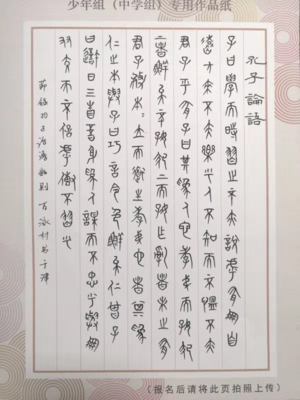 少年组（中学组）专用作品纸
孔子論語
子曰學而時習之不亦說乎有朋自
遠方來不亦樂乎人不知而不慍不亦
君子乎有子曰其為人也孝弟而好犯
上者鮮矣不好犯上而好作亂者未之有
君子務本本立而道生孝弟也者其為
仁之本與子曰巧言令色鮮矣仁曾子
曰吾日三省吾身為人謀而不忠乎與朋
友交而不信乎傳不習乎
節錄孔子論語數則
（报名后请将此页拍照上传）